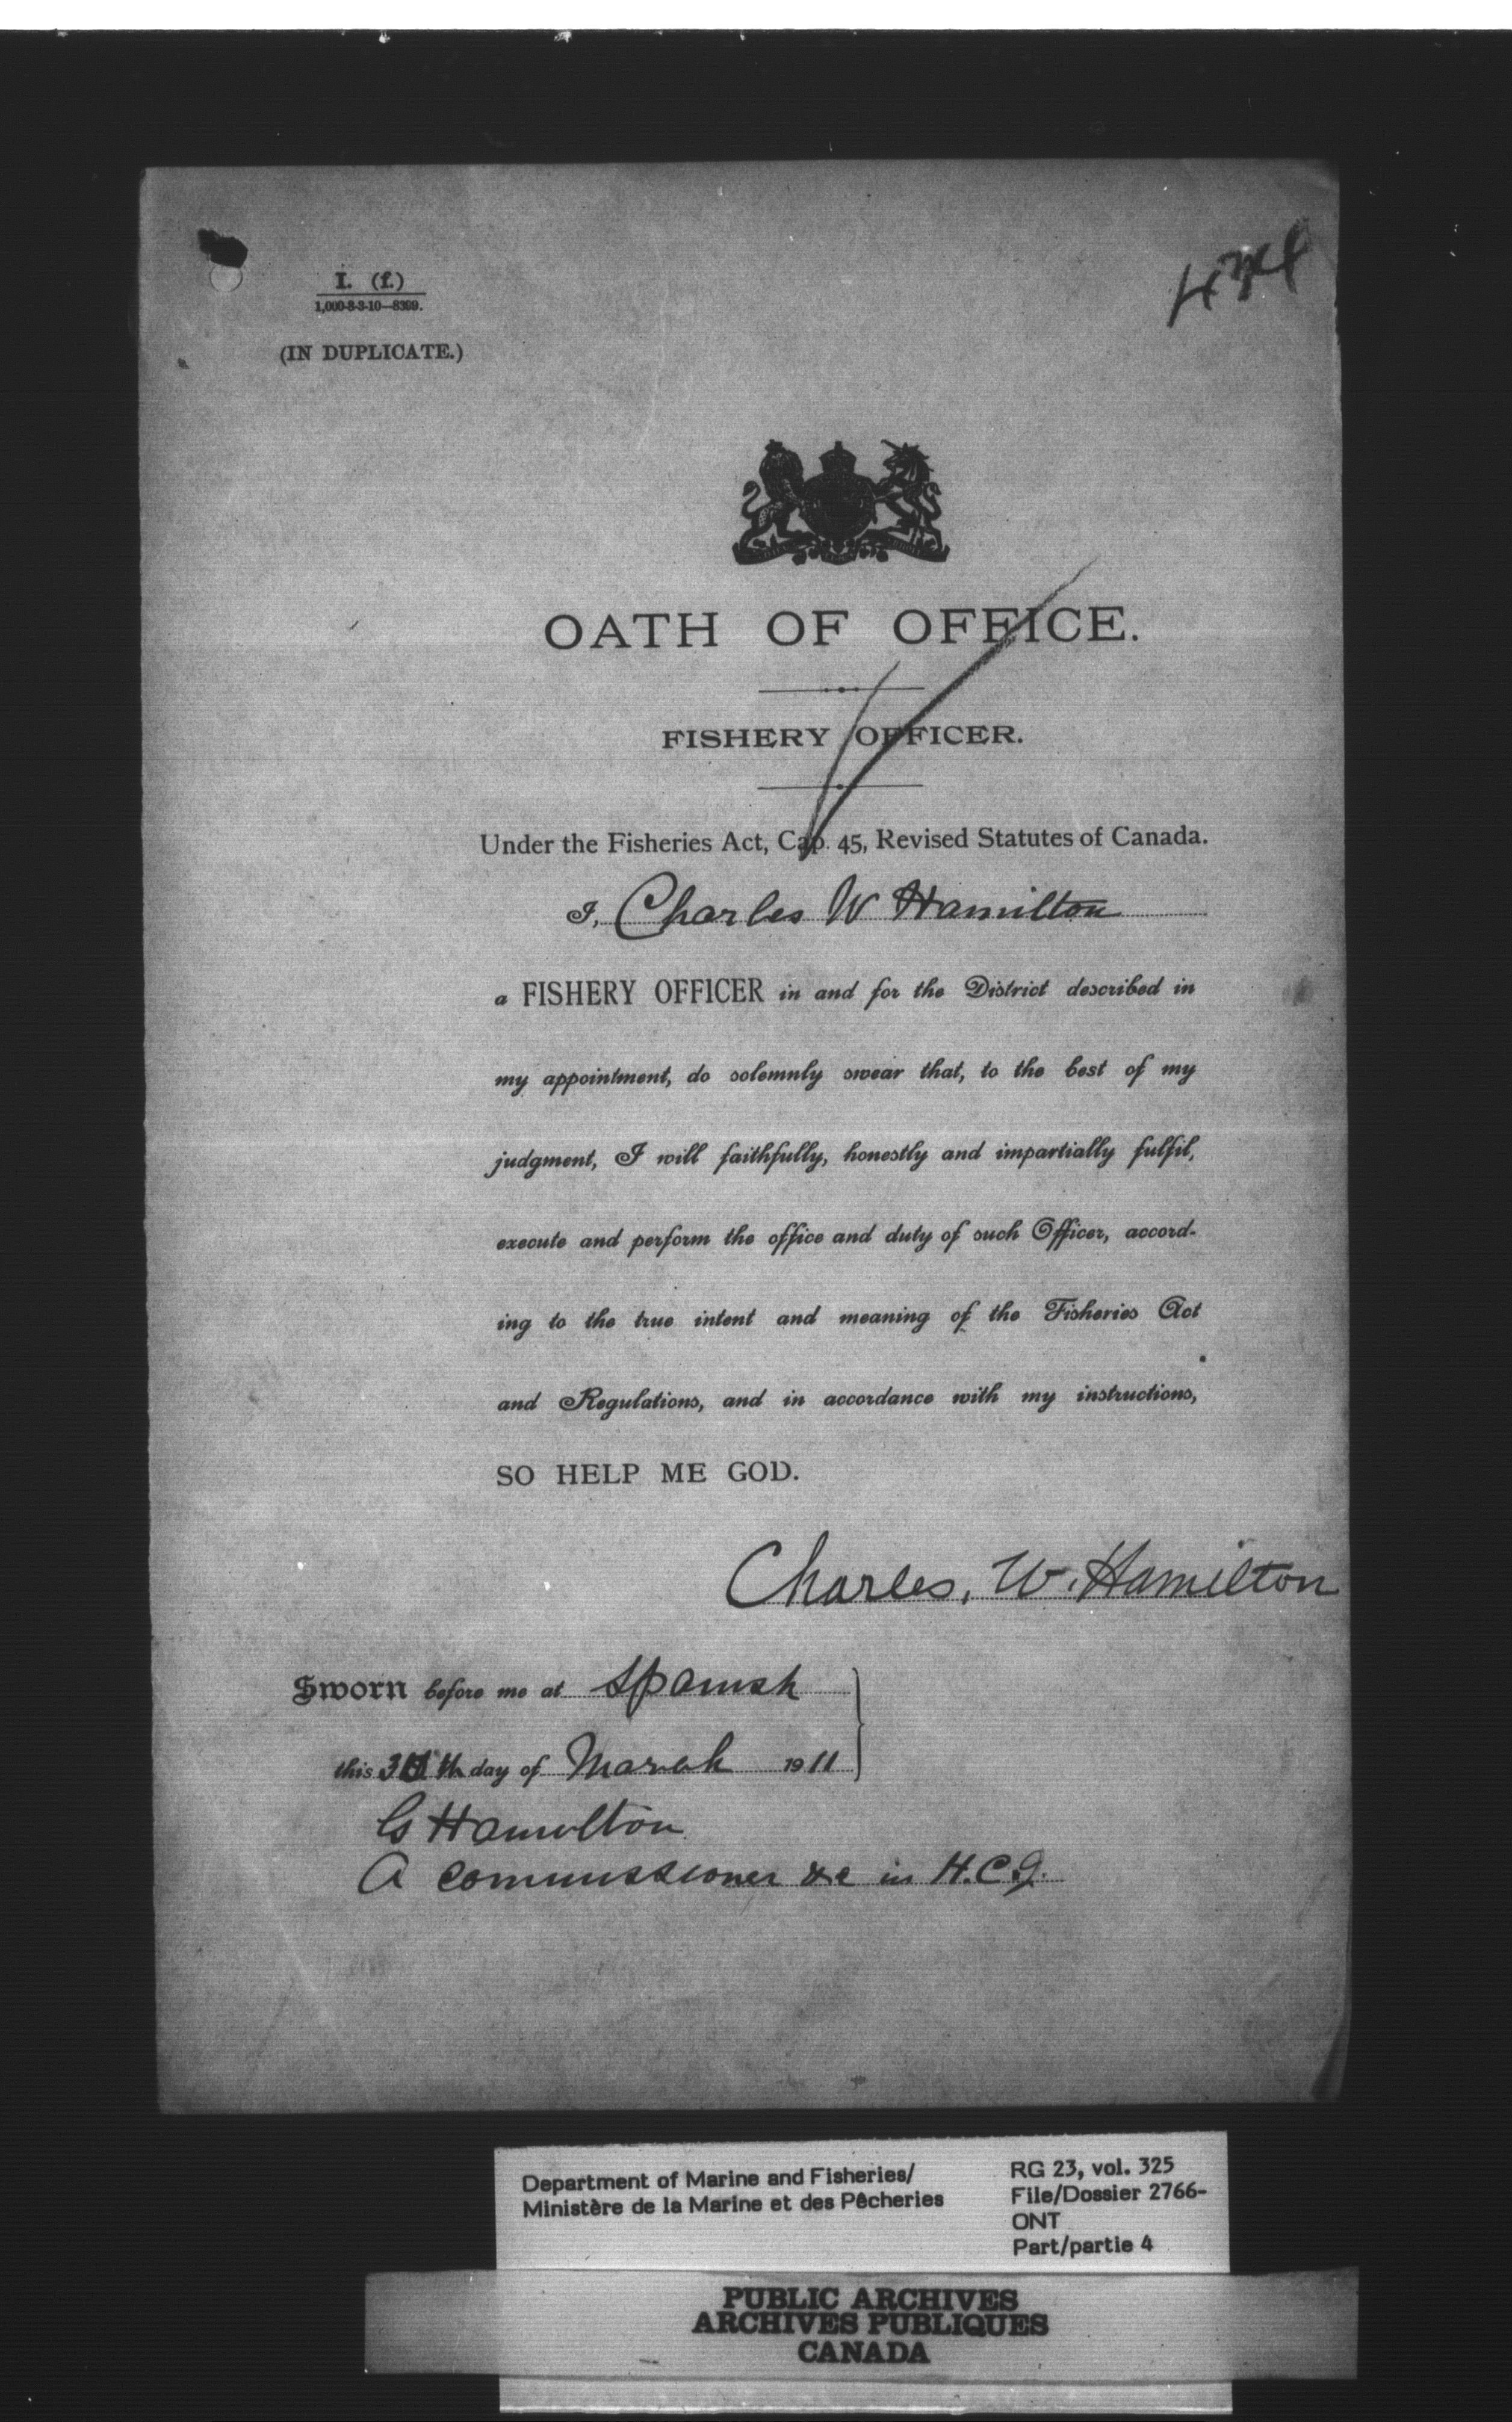 I. (f.)
1,000-8-3-10—8399.
(IN DUPLICATE.)
OATH OF OFFICE.
FISHERY OFFICER.
Under the Fisheries Act, Cap. 45, Revised Statutes of Canada.
I, Charles W Hamilton
a FISHERY OFFICER in and for the District described in
my appointment, do solemnly swear that, to the best of my
judgment, I will faithfully, honestly and impartially fulfil,
execute and perform the office and duty of such Officer, accord-
ing to the true intent and meaning of the Fisheries Act
and Regulations, and in accordance with my instructions,
SO HELP ME GOD.
Charles. W. Hamilton
Sworn before me at Spanish
this 30th day of March 1911
G Hamilton
A Commissioner &c in H.C.J.
Department of Marine and Fisheries/
Ministère de la Marine et des Pêcheries
RG 23, vol. 325
File/Dossier 2766-
ONT
Part/partie 4
PUBLIC ARCHIVES
ARCHIVES PUBLIQUES
CANADA